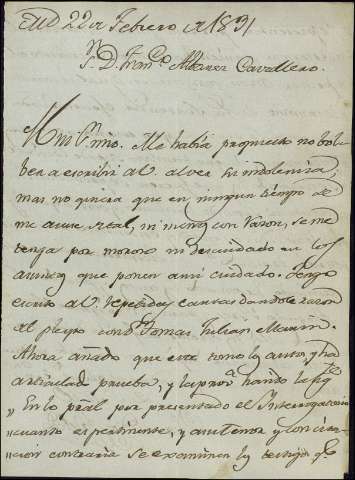 22 de Febrero de 1831
Sr. D. Franco. Albarez Cavallero.
Muy Sr. mio. Me había propuesto no bol
ber a escribir a V. al ver su indolencia,
mas no quiera que en ningun tiempo se
me acuse real, ni menos con razon, se me
tenga por moroso ni descuidado en los
asuntos que ponen a mi cuidado. Tengo
escrito a V. repetidas cartas dandole razon
del pleyto con Dn. Tomas Julian Marin.
Ahora añado que este tomó los autos, y ha
articulado prueba, y la
En lo pral. por presentado el Interrogatorio
en cuanto es pertinente, y a su tenor y con cita-
cion contraria se examinen los testigos qe.